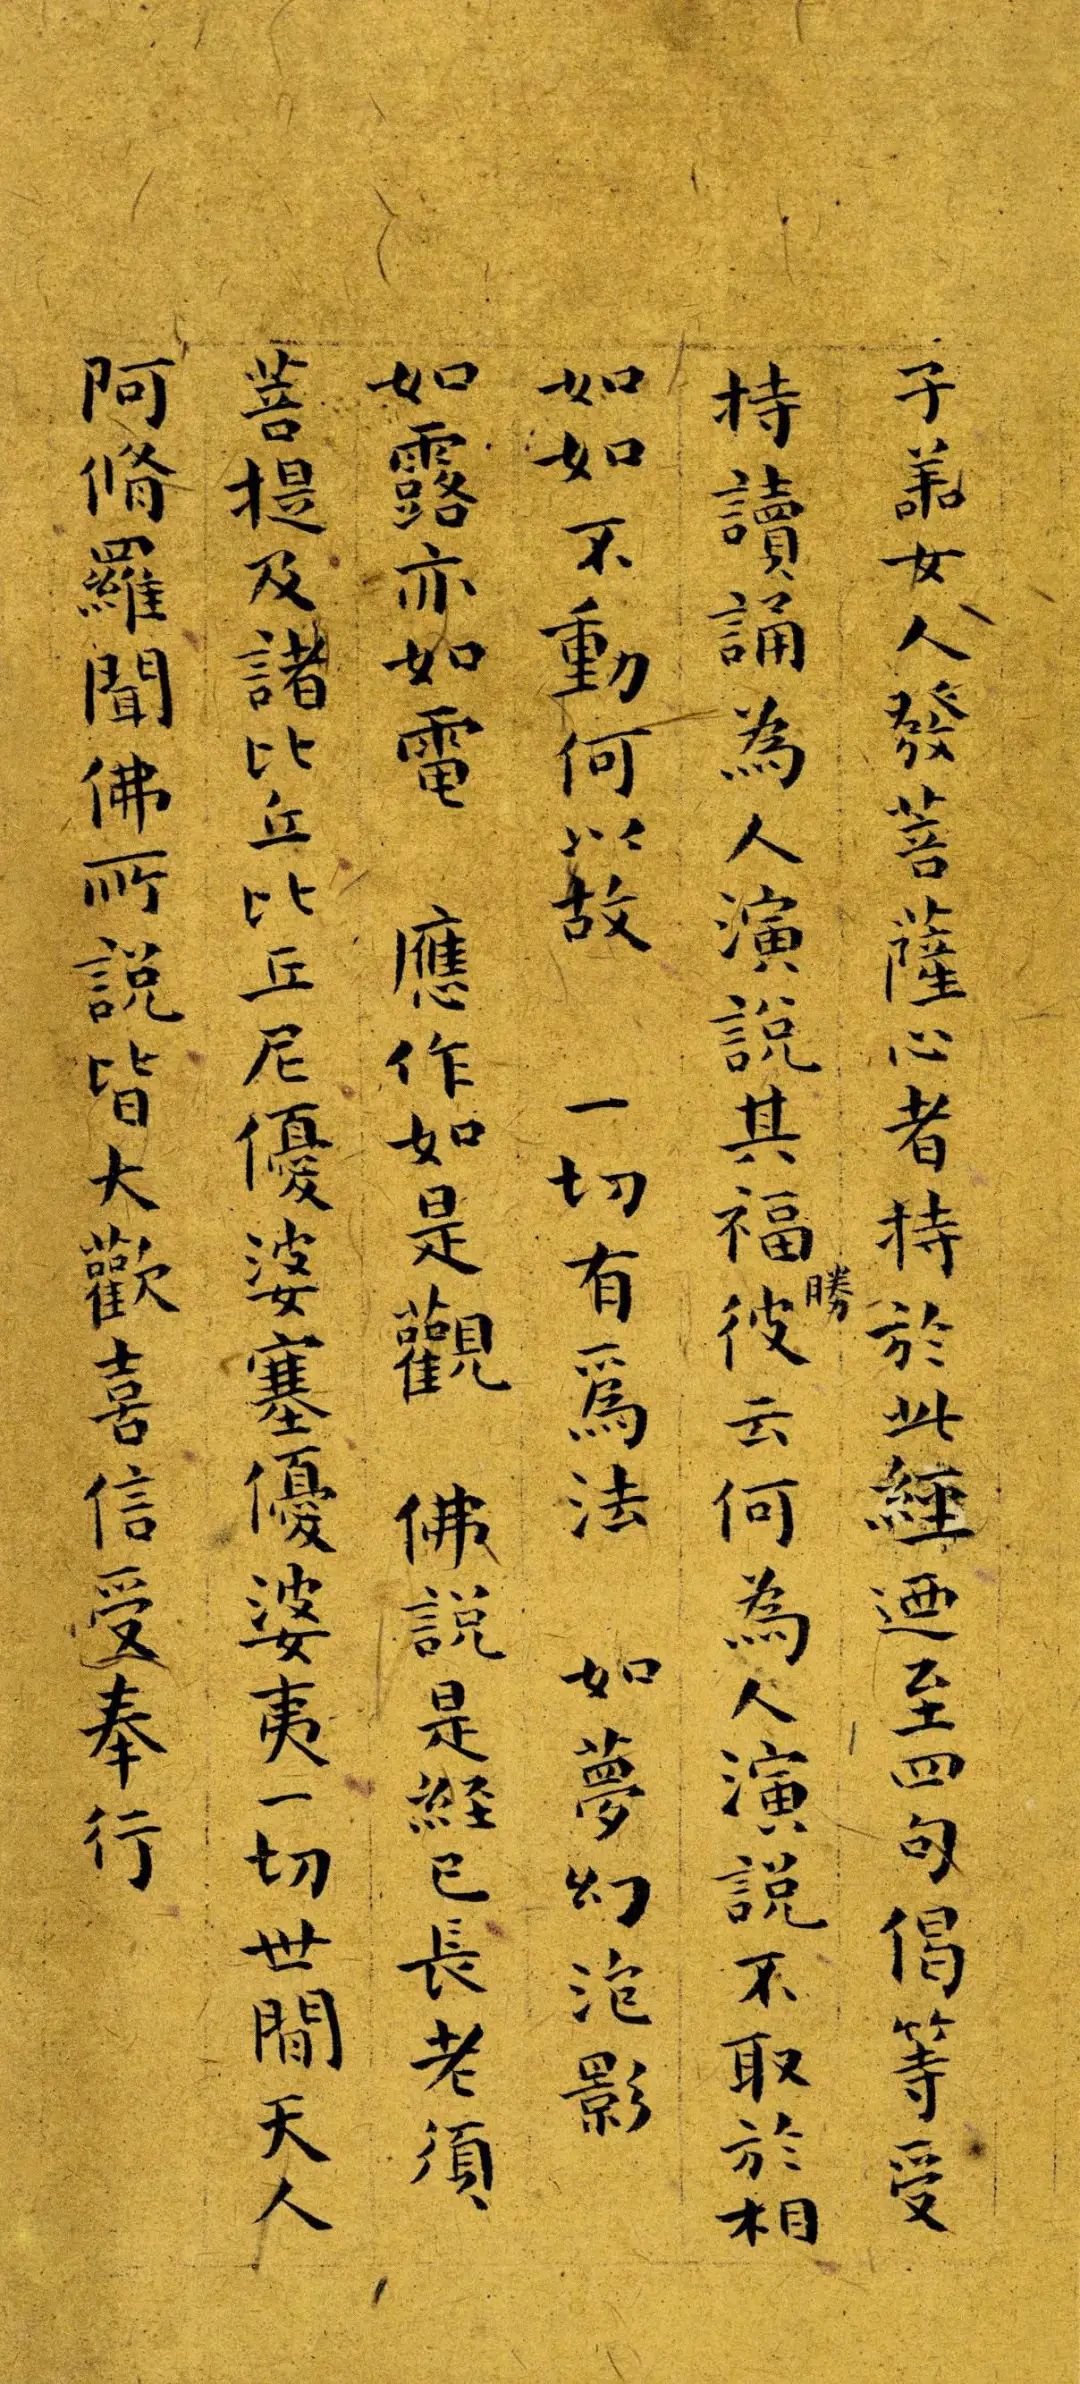 子善女人發菩薩心者持於此經迺至四句偈等受
持讀誦為人演説其福勝彼云何為人演説不取於相
如如不動何以故　一切有爲法　如夢幻泡影
如露亦如電　應作如是觀　佛説是經已長老須
菩提及諸比丘比丘尼優婆塞優婆夷一切世間天人
阿脩羅聞佛所説皆大歡喜信受奉行